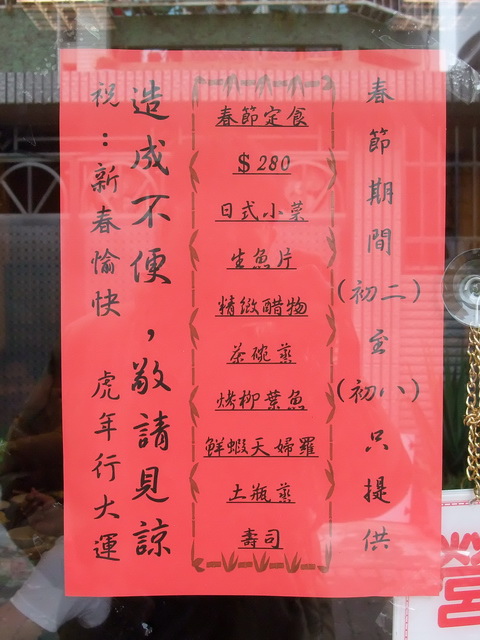 春節期間(初二)至(初八)只提供
春節定食
$280
日式小菜
生魚片
精緻醋物
茶碗蒸
烤柳葉魚
鮮蝦天婦羅
土瓶蒸
壽司
造成不便，敬請見諒
祝：新春愉快 虎年行大運
營